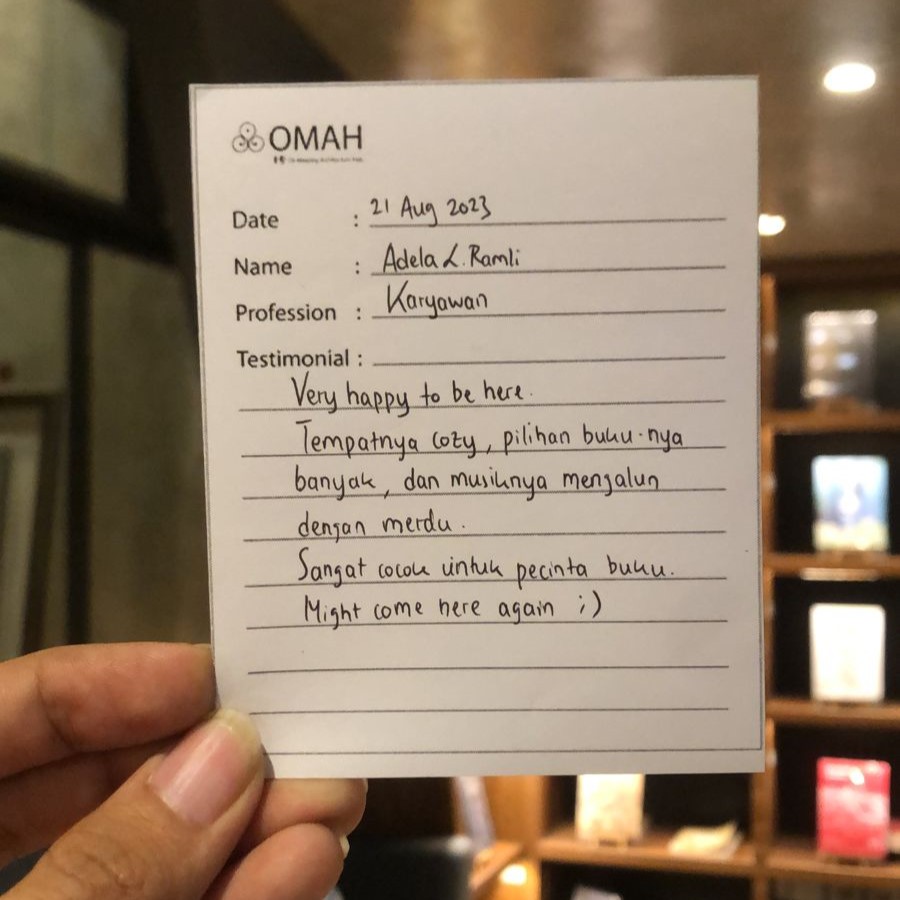 OMAH
Date : 21 Aug 2023
Name : Adela L. Ramli
Profession : Karyawan
Testimonial :
Very happy to be here.
Tempatnya cozy, pilihan buku-nya
banyak, dan musiknya mengalun
dengan merdu.
Sangat cocok untuk pecinta buku.
Might come here again ;)